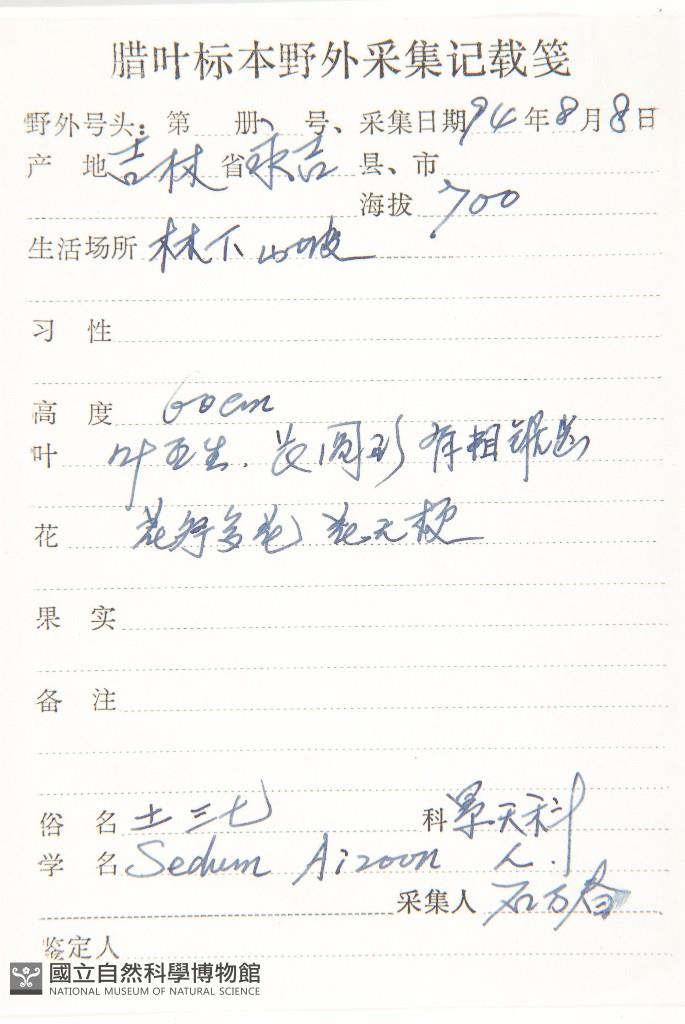 腊叶标本野外采集记载笺
野外号头：第 册 号、采集日期 94 年 8 月 8 日
产 地 吉林 省 永吉 县、市
海拔 700
生活场所 林下 山坡
习 性
高 度 60cm
叶 叶互生. 长圆形 有粗锯齿
花 花序多花 花无梗
果 实
备 注
俗 名 土三七 科 景天科
学 名 Sedum Aizoon
采集人 石万春
鉴定人
國立自然科學博物館
NATIONAL MUSEUM OF NATURAL SCIENCE